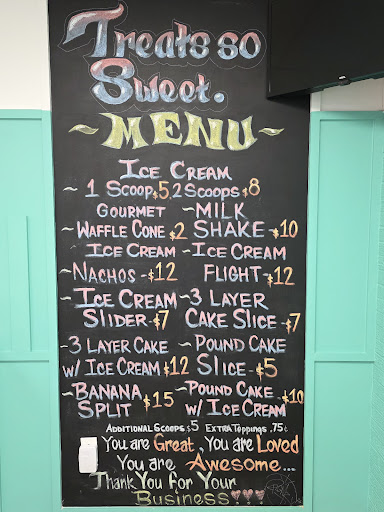 Treats so
Sweet.
~MENU~
ICE CREAM
~1 SCOOP $5, 2 SCOOPS $8
GOURMET ~MILK
~WAFFLE CONE $2 SHAKE-$10
ICE CREAM ~ICE CREAM
~NACHOS-$12 FLIGHT-$12
~ICE CREAM ~3 LAYER
SLIDER-$7 CAKE SLICE-$7
~3 LAYER CAKE ~POUND CAKE
W/ ICE CREAM $12 SLICE-$5
~BANANA ~POUND CAKE-$10
SPLIT -$15 W/ ICE CREAM
ADDITIONAL SCOOPS $5 EXTRA TOPPINGS .75¢
You are Great, You are Loved
You are Awesome...
Thank You for Your
Business